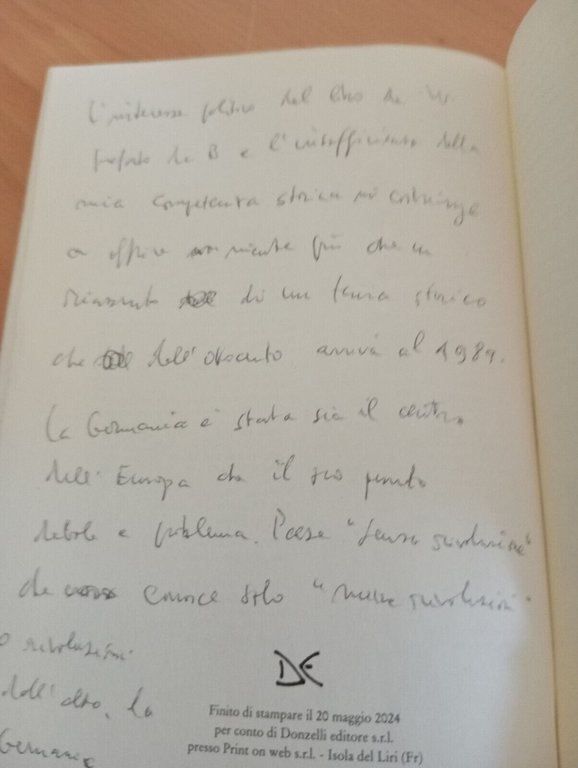 L'interesse politico del libro
B e l'insufficienza della
mia competenza storica mi costringe
a offrire niente più che un
riassunto di un tema storico
che dall'ottocento arriva al 1989.
La Germania è stata sia il centro
dell'Europa che il suo punto
debole e problema. Paese "senza rivoluzione"
che conosce solo "mezze rivoluzioni"
o rivoluzioni
dall'alto, la
Germania
DE
Finito di stampare il 20 maggio 2024
per conto di Donzelli editore s.r.l.
presso Print on web s.r.l. - Isola del Liri (Fr)